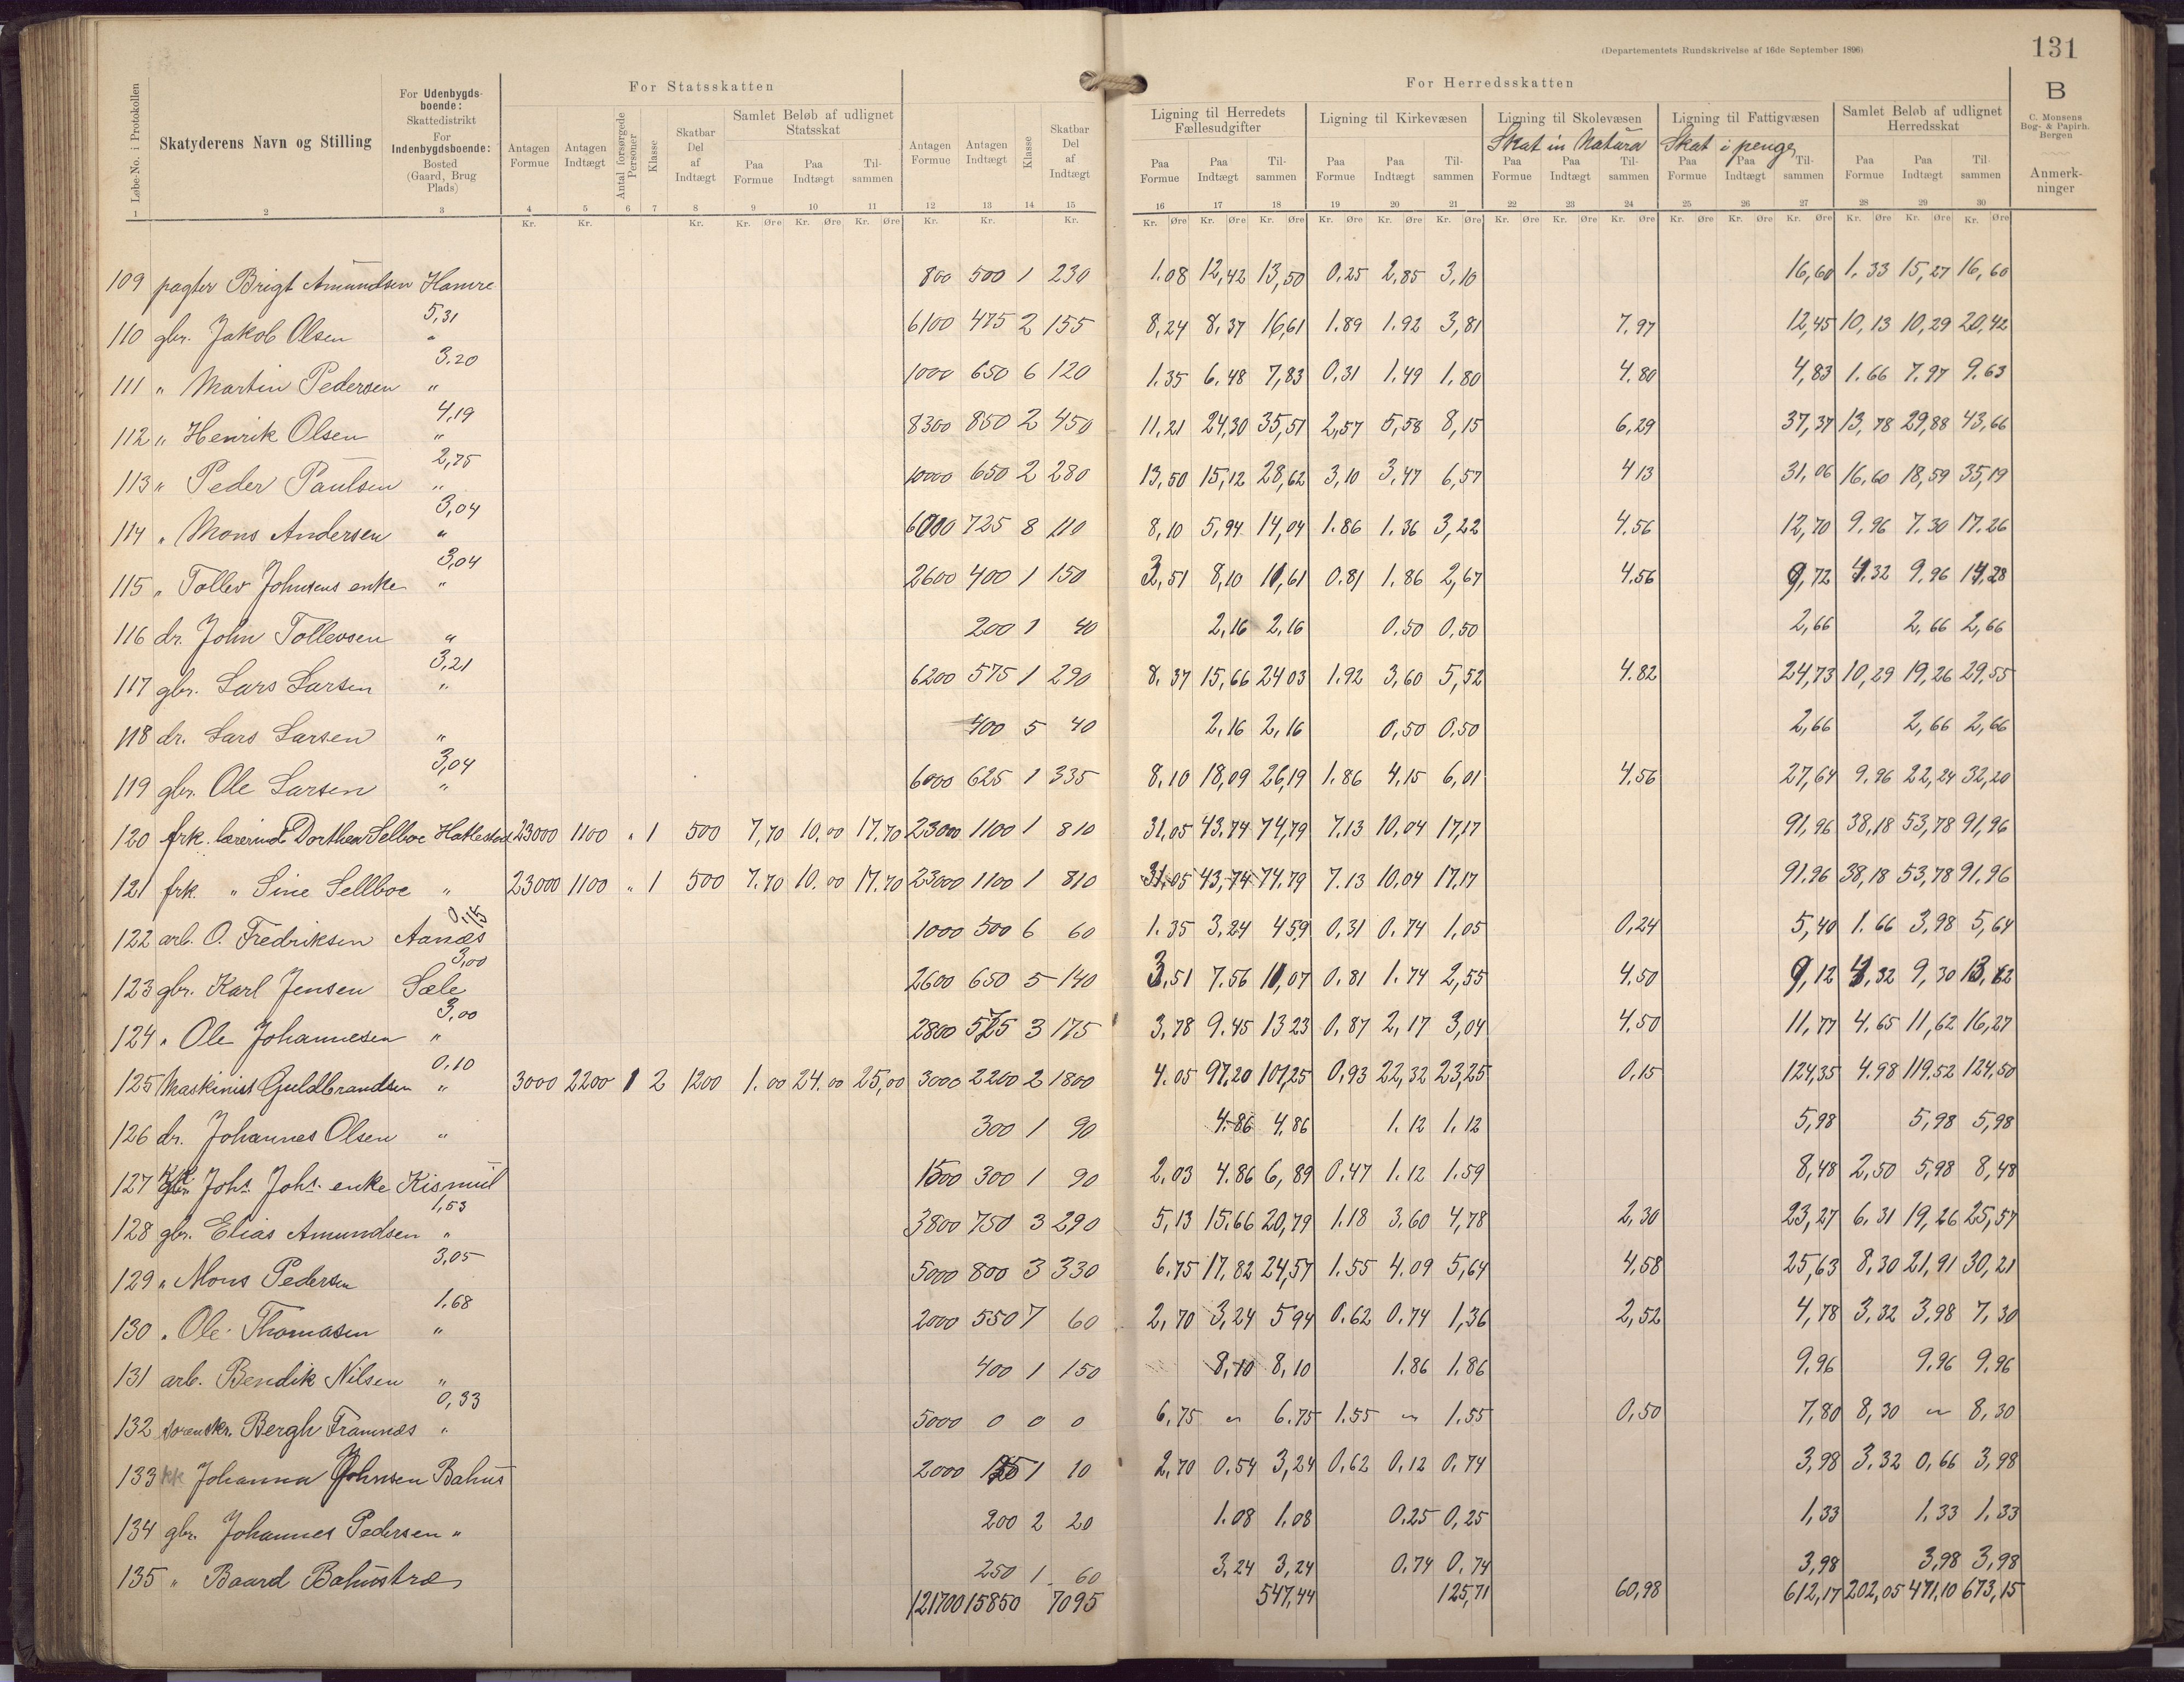 (Departementets Rundskrivelse af 16de September 1896)
131
For Statsskatten
For Herredsskatten
B
C. Monsens Bog- & Papirh. Bergen
Løbe-No. i Protokollen
Skatyderens Navn og Stilling
For Udenbygdsboende: Skattedistrikt For Indenbygdsboende: Bosted (Gaard, Brug Plads)
Antagen Formue
Antagen Indtægt
Antal forsørgede Personer
Klasse
Skatbar Del af Indtægt
Samlet Beløb af udlignet Statsskat
Paa Formue
Paa Indtægt
Tilsammen
Antagen Formue
Antagen Indtægt
Klasse
Skatbar Del af Indtægt
Ligning til Herredets Fællesudgifter
Paa Formue
Paa Indtægt
Tilsammen
Ligning til Kirkevæsen
Paa Formue
Paa Indtægt
Tilsammen
Ligning til Skolevæsen
Skat in Natura
Paa Formue
Paa Indtægt
Tilsammen
Ligning til Fattigvæsen
Skat i penge
Paa Formue
Paa Indtægt
Tilsammen
Samlet Beløb af udlignet Herredsskat
Paa Formue
Paa Indtægt
Tilsammen
Anmerkninger
1 2 3 4 5 6 7 8 9 10 11 12 13 14 15 16 17 18 19 20 21 22 23 24 25 26 27 28 29 30
Kr. Kr. Kr. Kr. Øre Kr. Øre Kr. Øre Kr. Kr. Kr. Kr. Øre Kr. Øre Kr. Øre Kr. Øre Kr. Øre Kr. Øre Kr. Øre Kr. Øre Kr. Øre Kr. Øre Kr. Øre Kr. Øre Kr. Øre Kr. Øre Kr. Øre
109 pagter Brigt Amundsen Hamre 800 500 1 230 1.08 12,42 13,50 0.25 2,85 3,10 16,60 1.33 15,27 16,60
5,31
110 gbr. Jakob Olsen " 6100 475 2 155 8,24 8,37 16,61 1.89 1.92 3,81 7,97 12,45 10,13 10,29 20,42
3.20
111 " Martin Pedersen " 1000 650 6 120 1.35 6,48 7,83 0,31 1.49 1.80 4.80 4,83 1.66 7.97 9.63
4,19
112 " Henrik Olsen " 8300 850 2 450 11,21 24,30 35,51 2,57 5,58 8,15 6,29 37,37 13,78 29,88 43,66
2,75
113 " Peder Paulsen " 10000 650 2 280 13,50 15,12 28,62 3,10 3,47 6,57 4 13 31,06 16,60 18,59 35,19
3,04
114 " Mons Andersen " 6000 725 8 110 8,10 5,94 14,04 1.86 1.36 3,22 4,56 12,70 9.96 7.30 17.26
3,04
115 " Tollev Johnsens enke " 2600 400 1 150 3,51 8,10 11,61 0.81 1.86 2,67 4.56 9,72 4.32 9,96 14,28
116 dr. John Tollevsen " 200 1 40 2,16 2,16 0.50 0,50 2,66 2,66 2,66
3,21
117 gbr. Lars Larsen " 6200 575 1 290 8.37 15,66 24 03 1.92 3,60 5,52 4.82 24,73 10,29 19,26 29.55
118 dr. Lars Larsen " 400 5 40 2,16 2,16 0,50 0.50 2,66 2,66 2,66
3,04
119 gbr. Ole Larsen " 6000 625 1 335 8,10 18,09 26,19 1.86 4,15 6,01 4,56 27,64 9.96 22,24 32,20
120 frk. lærerind Dorthea Sellboe Hatlestad 23000 1100 " 1 500 7,70 10.00 17.70 23000 1100 1 810 31,05 43.74 74,79 7.13 10,04 17,17 91,96 38,18 53,78 91,96
121 frk. " Sine Sellboe " 23000 1100 " 1 500 7.70 10.00 17.70 23000 1100 1 810 31,05 43,74 74.79 7.13 10,04 17,17 91.96 38,18 53,78 91.96
0,15
122 arb. O. Fredriksen Aanæs 1000 500 6 60 1.35 3,24 4 59 0,31 0.74 1,05 0,24 5,40 1.66 3,98 5,64
3,00
123 gbr. Karl Jensen Sæle 2600 650 5 140 3,51 7.56 11,07 0.81 1.74 2,55 4,50 9,12 4,32 9,30 13,62
3,00
124 " Ole Johannesen " 2800 575 3 175 3,78 9.45 13 23 0,87 2,17 3,04 4.50 11,77 4.65 11,62 16,27
0.10
125 Maskinist Guldbrandsen " 3000 2200 1 2 1200 1.00 24.00 25,00 3000 2200 2 1800 4.05 97,20 101,25 0,93 22,32 23,25 0,15 124,35 4.98 119.52 124,50
126 dr. Johannes Olsen " 300 1 90 4.86 4,86 1.12 1,12 5,98 5,98 5,98
127 Johs. Johs. enke Kismul 1500 300 1 90 2,03 4.86 6,89 0,47 1.12 1.59 8,48 2,50 5,98 8,48
1,53
128 gbr. Elias Amundsen " 3800 750 3 290 5,13 15.66 20,79 1.18 3.60 4,78 2,30 23,27 6.31 19,26 25,57
3,05
129 " Mons Pedersen 5000 800 3 330 6.75 17.82 24,57 1.55 4.09 5,64 4,58 25,63 8,30 21,91 30,21
1.68
130 " Ole Thomasen " 2000 550 7 60 2,70 3,24 5 94 0.62 0.74 1,36 2,52 4,78 3,32 3,98 7,30
131 arb. Bendik Nilsen " 400 1 150 8,10 8,10 1.86 1.86 9,96 9.96 9,96
0,33
132 sorenskr. Bergh Framnæs " 5000 0 0 0 6,75 " 6.75 1.55 " 1.55 0,50 7,80 8,30 " 8,30
133 kk Johanna Johnsen Bahus 2000 1 10 2,70 0.54 3,24 0,62 0.12 0.74 3,98 3.32 0,66 3,98
134 gbr. Johannes Pedersen " 200 2 20 1.08 1,08 0.25 0,25 1,33 1.33 1.33
135 " Baard Bahustræ 250 1 60 3,24 3,24 0.74 0.74 3,98 3,98 3,98
121700 15850 7095 547,44 125,71 60,98 612,17 202,05 471,10 673,15